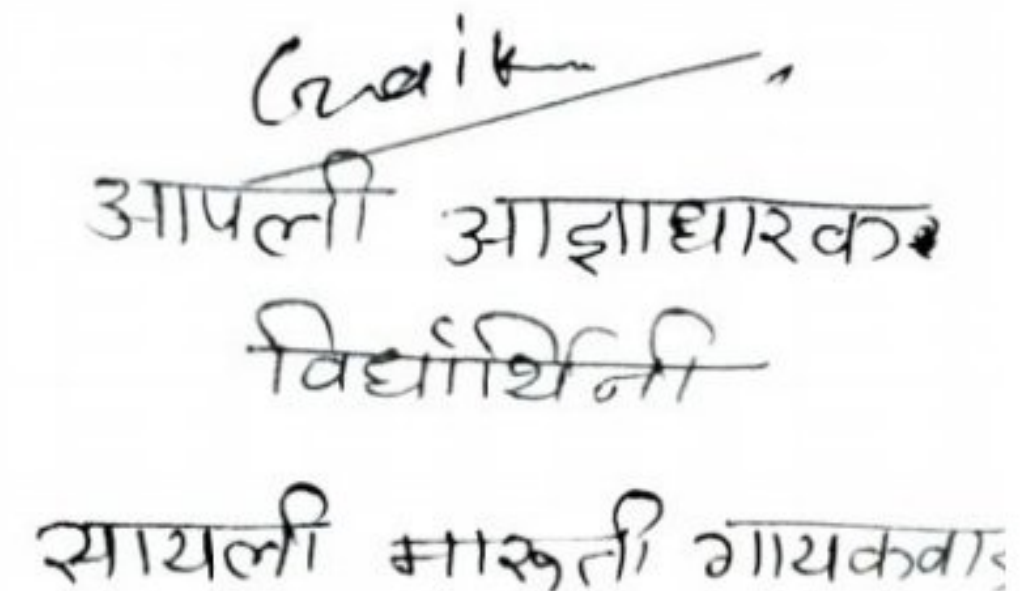 आपली आज्ञाधारक
विर्द्यार्थिनी
सायली मारुती गायकवाड